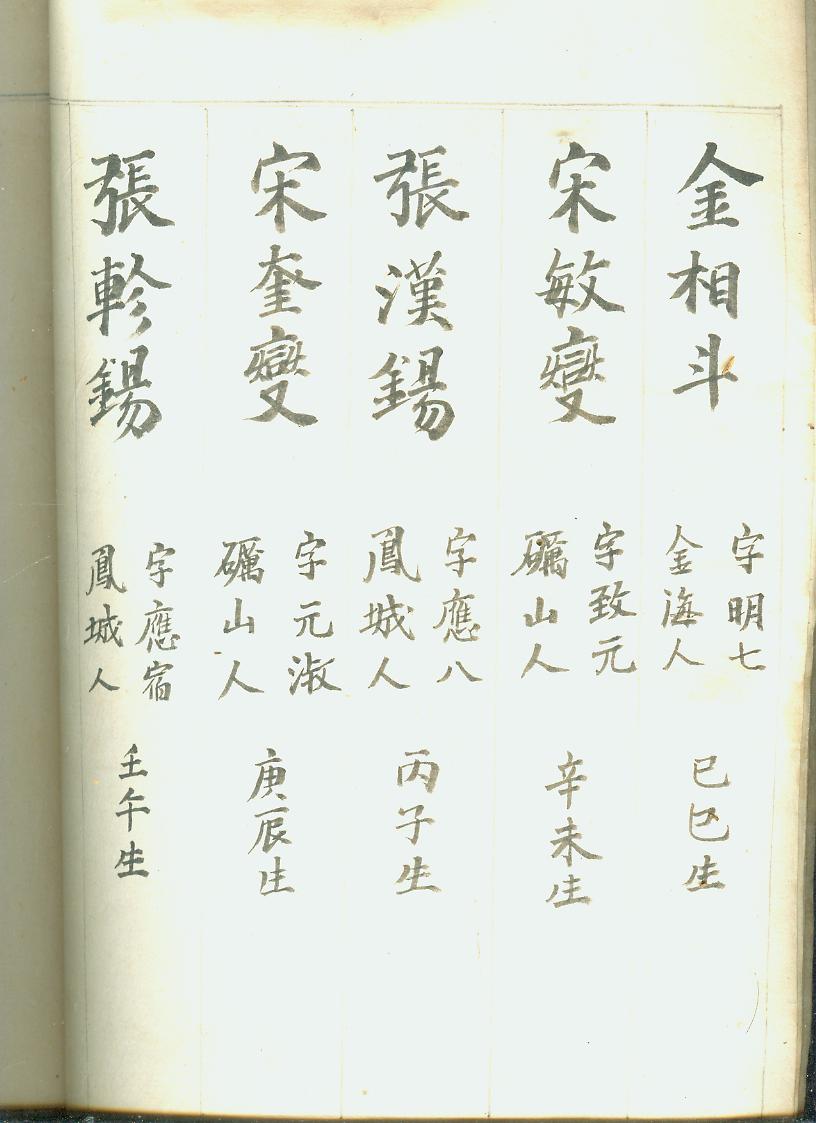 金相斗
字明七
金海人
己巳生
宋敏燮
字致元
礪山人
辛未生
張漢錫
字應八
鳳城人
丙子生
宋奎燮
字元淑
礪山人
庚辰生
張軫錫
字應宿
鳳城人
壬午生